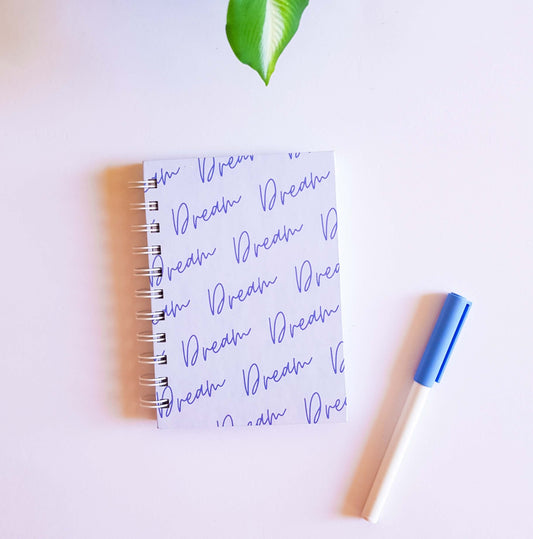 am Dream
Dream Dream
Dream Dream D
am Dream Drea
Dream Dream
Dream Dream D
Dream Dream